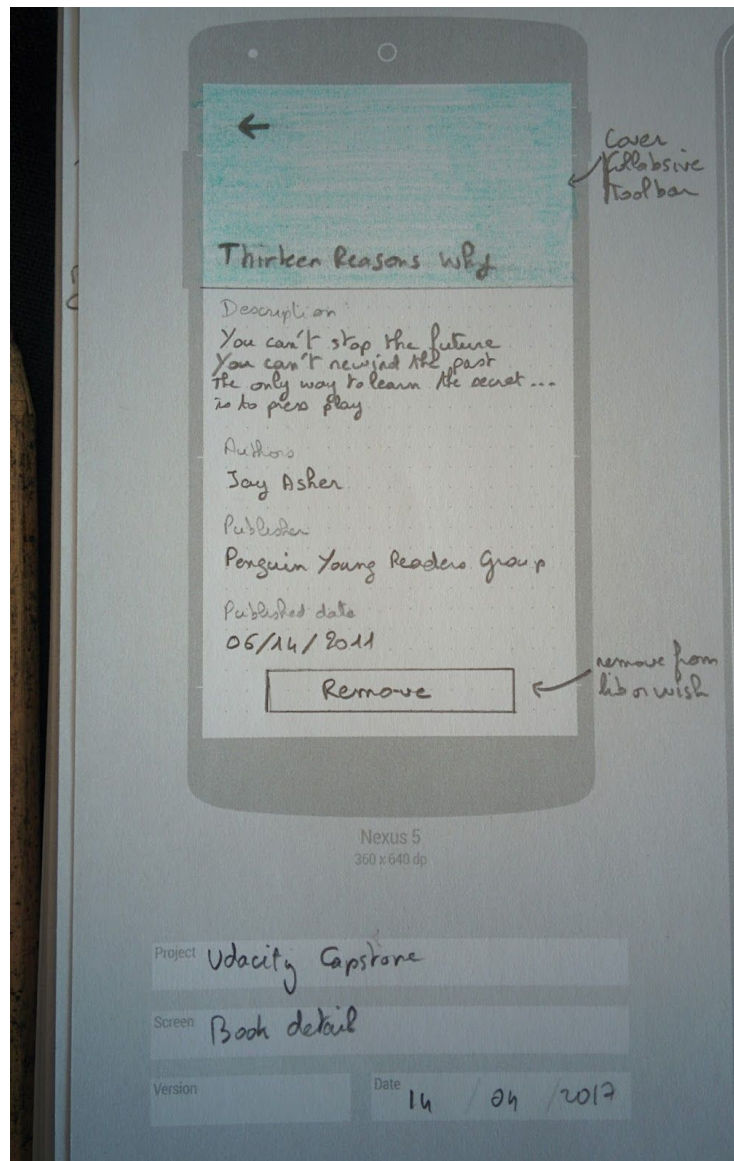 ←
Thirteen Reasons Why
Cover
Collabsive
Toolbar
Description
You can't stop the future
You can't rewind the past
The only way to learn the secret...
is to press play
Authors
Jay Asher
Publisher
Penguin Young Readers Group
Published date
06/14/2011
Remove
remove from
lib or wish
Nexus 5
360 x 640 dp
Project Udacity Capstone
Screen Book detail
Version
Date 14 / 04 / 2017